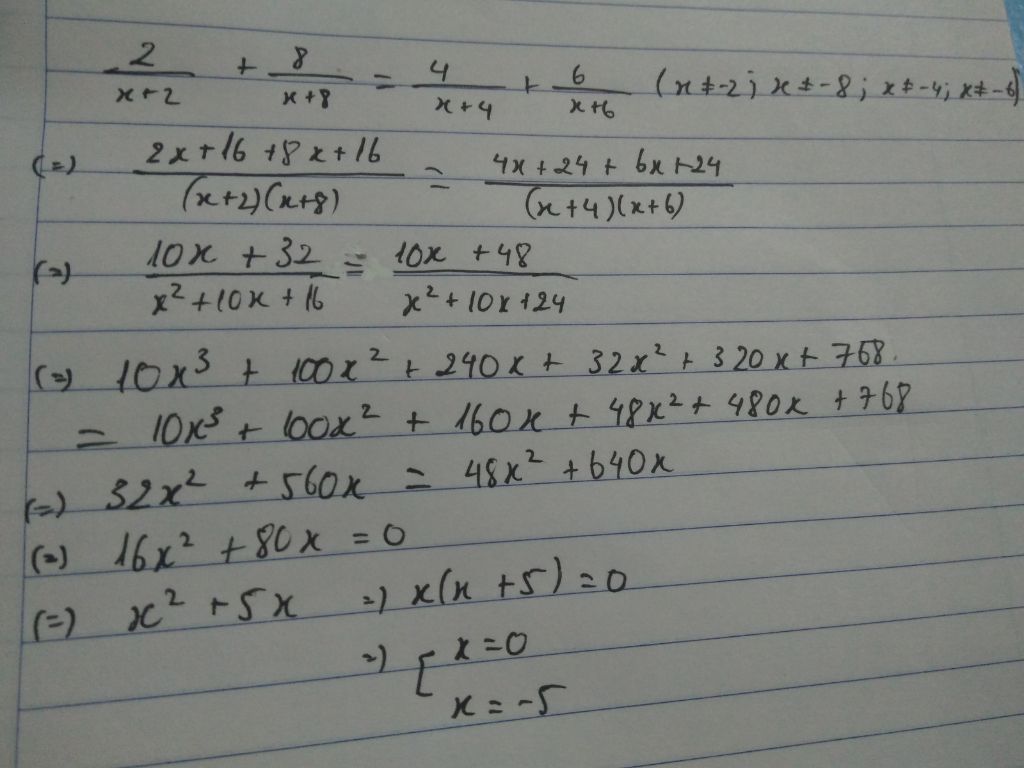 2/(x+2) + 8/(x+8) = 4/(x+4) + 6/(x+6) (x ≠ -2; x ≠ -8; x ≠ -4; x ≠ -6)
(=) (2x + 16 + 8x + 16)/((x+2)(x+8)) = (4x + 24 + 6x + 24)/((x+4)(x+6))
(=) (10x + 32)/(x² + 10x + 16) = (10x + 48)/(x² + 10x + 24)
(=) 10x³ + 100x² + 240x + 32x² + 320x + 768.
= 10x³ + 100x² + 160x + 48x² + 480x + 768
(=) 32x² + 560x = 48x² + 640x
(=) 16x² + 80x = 0
(=) x² + 5x =) x(x + 5) = 0
=) [ x = 0
x = -5